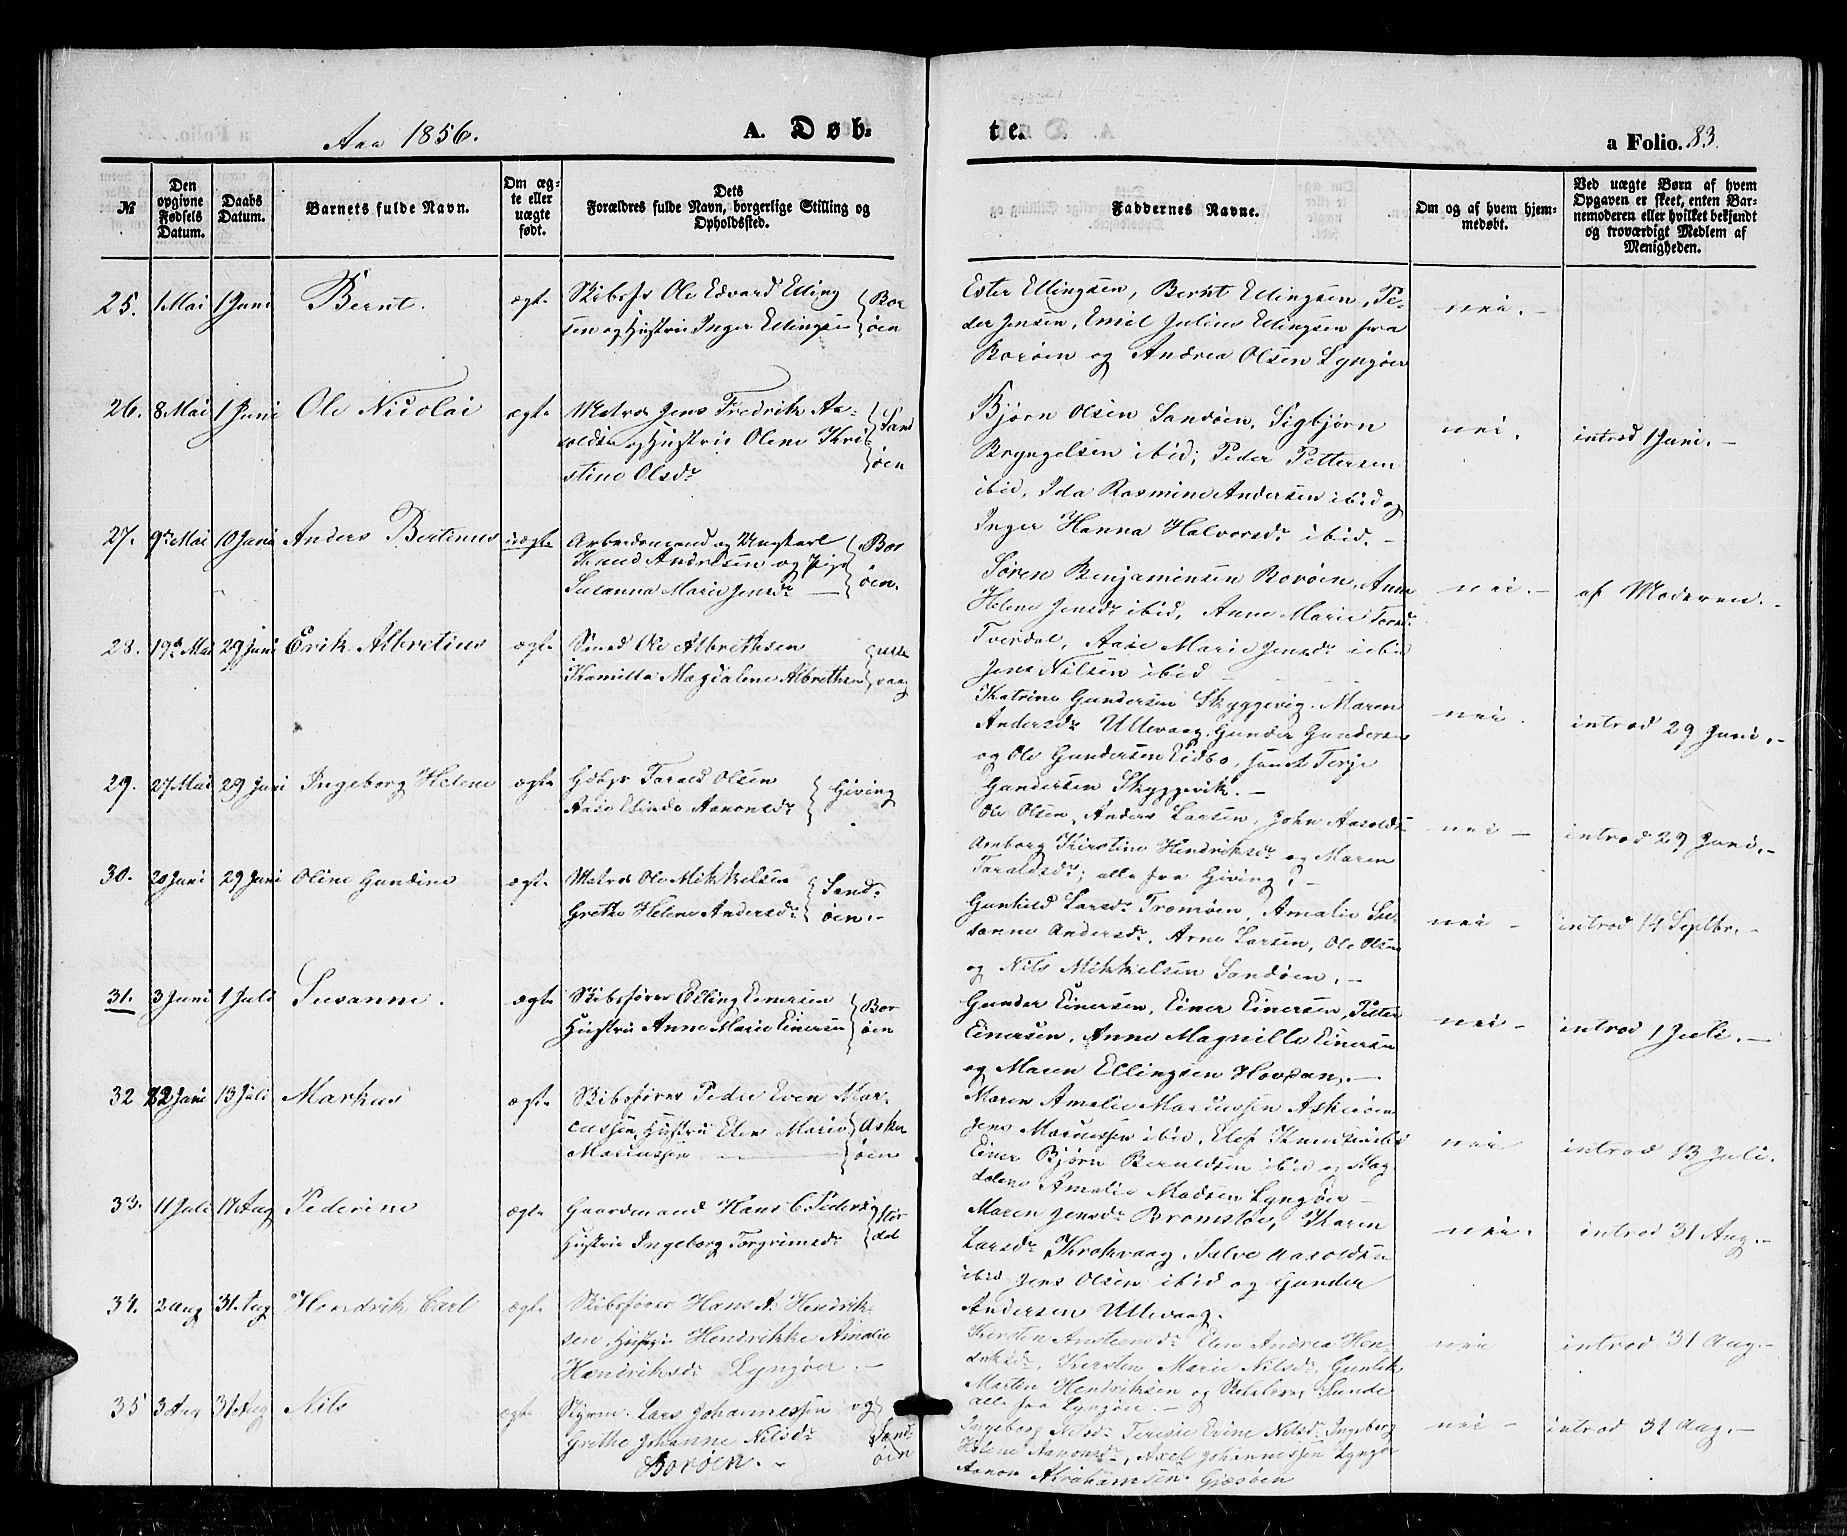 Aar 1856.
A. Døb-
te.
a Folio. 83.
№
Den opgivne Fødsels Datum.
Daabs Datum.
Barnets fulde Navn.
Om ægte eller uægte født.
Dets Forældres fulde Navn, borgerlige Stilling og Opholdssted.
Faddernes Navne.
Om og af hvem hjemmedøbt.
Ved uægte Børn af hvem Opgaven er skeet, enten Barnemoderen eller hvilket bekjendt og troværdigt Medlem af Menigheden.
25. 1 Mai 1 Juni Bernt. ægte
Skibsfr Ole Edvard Elling
sen og Hustrue Inger Ellingsen
Bor
øen
Ester Ellingsen, Bernt Ellingsen, Pe-
der Jensen, Emil Julius Ellingsen fra
Borøen og Andrea Olsen Lyngøer
nei. -
26. 8 Mai 1 Juni Ole Nicolai ægte
Matros Jens Fredrik Aa-
soldsen og Hustrue Olene Kri-
stine Olsdr
Sand
øen
Bjørn Olsen Sandøen, Sigbjørn
Bryngelsen ibid; Peder Pettersen
ibid, Ida Rasmine Andersen ibid og
Inger Hanna Halvorsdr ibid. -
nei.
introd 1 Juni. -
27. 9de Mai 10 Juni Anders Bertinus uægte
Arbeidsmand og Ungkarl
Knud Andresen og Pige
Susanna Marie Jensdr
Bor
øen.
Søren Benjaminsen Borøen, Anne
Helene Jensdr ibid, Anne Marie
Tverdal, Aase Marie Jensdr ibid
Jens Nilsen ibid
nei. -
af Moderen. -
28. 19de Mai 29 Juni Erik Albretius ægte
Smed Ole Albrethsen
Kamilla Magdalene Albrethsen
Ulle
vaag
Katrine Gundersen Skyggevig, Maren
Andersdr Ullevaag, Gunder Gundersen
og Ole Gundersen Eidbo, samt Terje
Gundersen Skyggevik. -
nei.
introd 29 Juni. -
29. 27 Mai 29 Juni Ingeborg Helene ægte
Gdbgr Tarald Olsen
Aase Elinde Aanonsdr
Giving
Ole Olsen, Anders Larsen, John Aasolds
Amborg Kirstine Hendriksdr og Maren
Taraldsdr; alle fra Giving; -
nei -
introd 29 Juni. -
30. 20 Juni 29 Juni Oline Gundine ægte
Matros Ole Mikkelsen
Grethe Helene Andersdr
Sand-
øen. -
Gunhild Larsdr Tromøen, Amalie Su-
sanne Andersdr, Arne Larsen, Ole Olsen
og Nils Mikkelsen Sandøen. -
nei -
introd 14 Septbr. -
31. 3 Juni 1 Juli Susanne. ægte
Skibsfører Elling Einersen
Hustru Anne Marie Einersen
Bor
øen
Gunder Einersen, Einer Einersen, Petter
Einersen, Anne Magnille Einersen
og Maren Ellingsen Hovdan. -
nei -
introd 1 Juli. -
32 22 Juni 13 Juli Markus ægte
Skibsfører Peder Even Mar-
cussen, Hustru Elen Marie
Marcussen
Asker
øen
Maren Amalie Marcussen Askerøen
Jens Marcussen ibid, Elef Knudsen ibid
Einer Bjørn Berntdsen ibid og Mag
dalene Amalie Madsen Lyngøer -
nei
introd 13 Juli.
33. 11 Juli 17 Aug Pederine ægte
Gaardmand Hans C. Peders
Hustrue Ingeborg Torgrimsdr
dal
Maren Jensdr Bromstøe, Karen
Larsdr Krokvaag, Salve Aasoldsen
ibid Jens Olsen ibid og Gunder
Andersen Ullevaag.
nei.
introd 31 Aug. -
34. 2 Aug 31. Aug Hendrik Carl ægte
Skibsfører Hans A. Hendrik-
sen, Hustrue Hendrikke Amalie
Hendriksdr Lyngøer. -
Kirsten Elen Andrea Hen-
driksdr, Kirsten Marie Nilsdr, Gunlik
Martin Hendriksen og Sunde
alle fra Lyngøer. -
nei
introd 31 Aug. -
35 3 Aug 31 Aug Nils ægte
Styrm. Lars Johannessen og
Grethe Johanne Nilsdr
Borøen. -
Sand-
øen
Ingeborg Nilsdr Teresie Evine Nilsd. Ingeborg
Helene Aanonsdr, Axel Johannessen Lyngør
Aanon Abrahamsen Gjesøen
nei -
introd 31 Aug. -